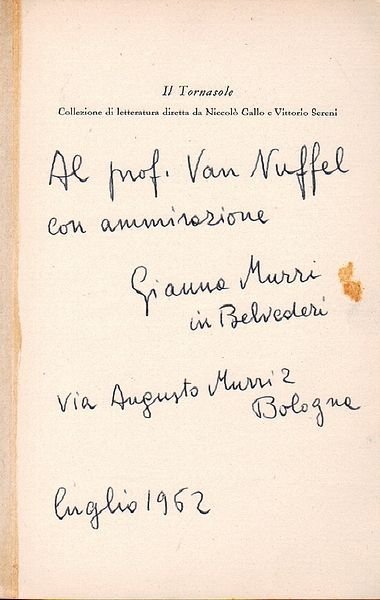 Il Tornasole
Collezione di letteratura diretta da Niccolò Gallo e Vittorio Sereni
Al prof. Van Nuffel
con ammirazione
Gianna Murri
in Belvederi
via Augusto Murri 2
Bologna
luglio 1962